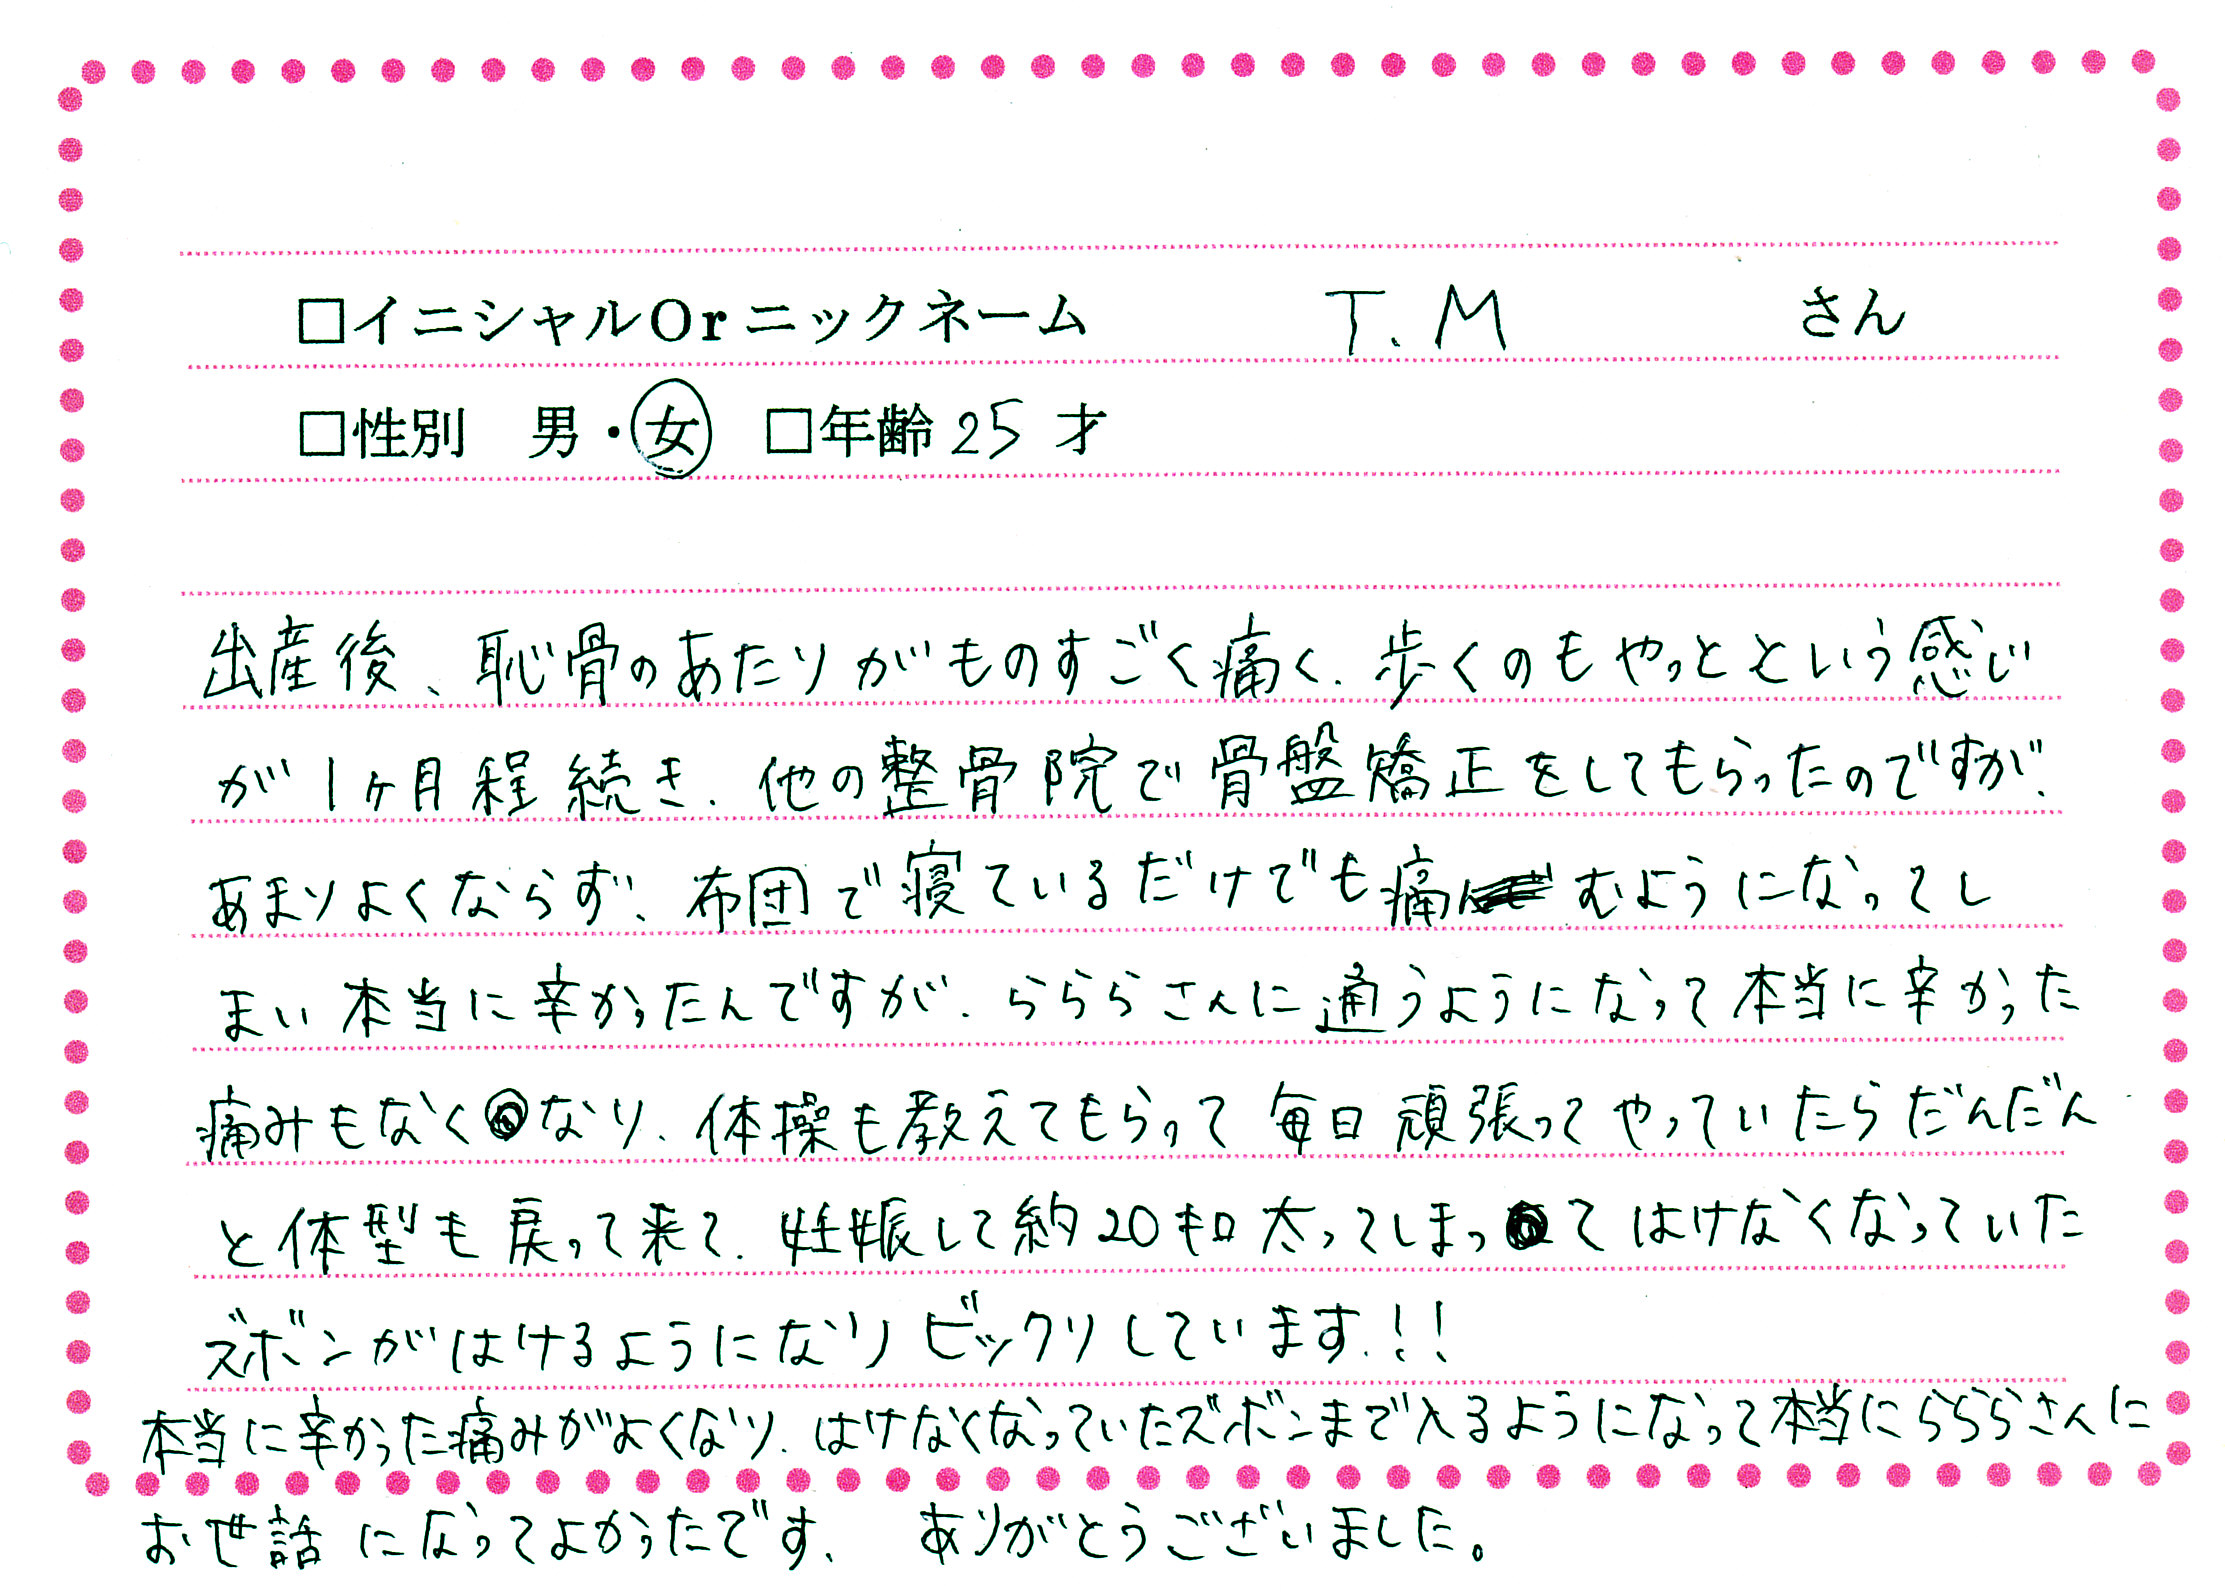 □イニシャルOrニックネーム T.M さん
□性別 男・女 □年齢 25 才
出産後、恥骨のあたりがものすごく痛く、歩くのもやっとという感じ
が1ヶ月程続き、他の整骨院で骨盤矯正をしてもらったのですが、
あまりよくならず、布団で寝ているだけでも痛むようになってし
まい本当に辛かったんですが、らららさんに通うようになって本当に辛かった
痛みもなくなり、体操も教えてもらって毎日頑張ってやっていたらだんだん
と体型も戻って来て、妊娠して約20キロ太ってしまってはけなくなっていた
ズボンがはけるようになりビックリしています!!
本当に辛かった痛みがよくなり、はけなくなっていたズボンまで入るようになって本当にらららさんに
お世話になってよかったです。 ありがとうございました。